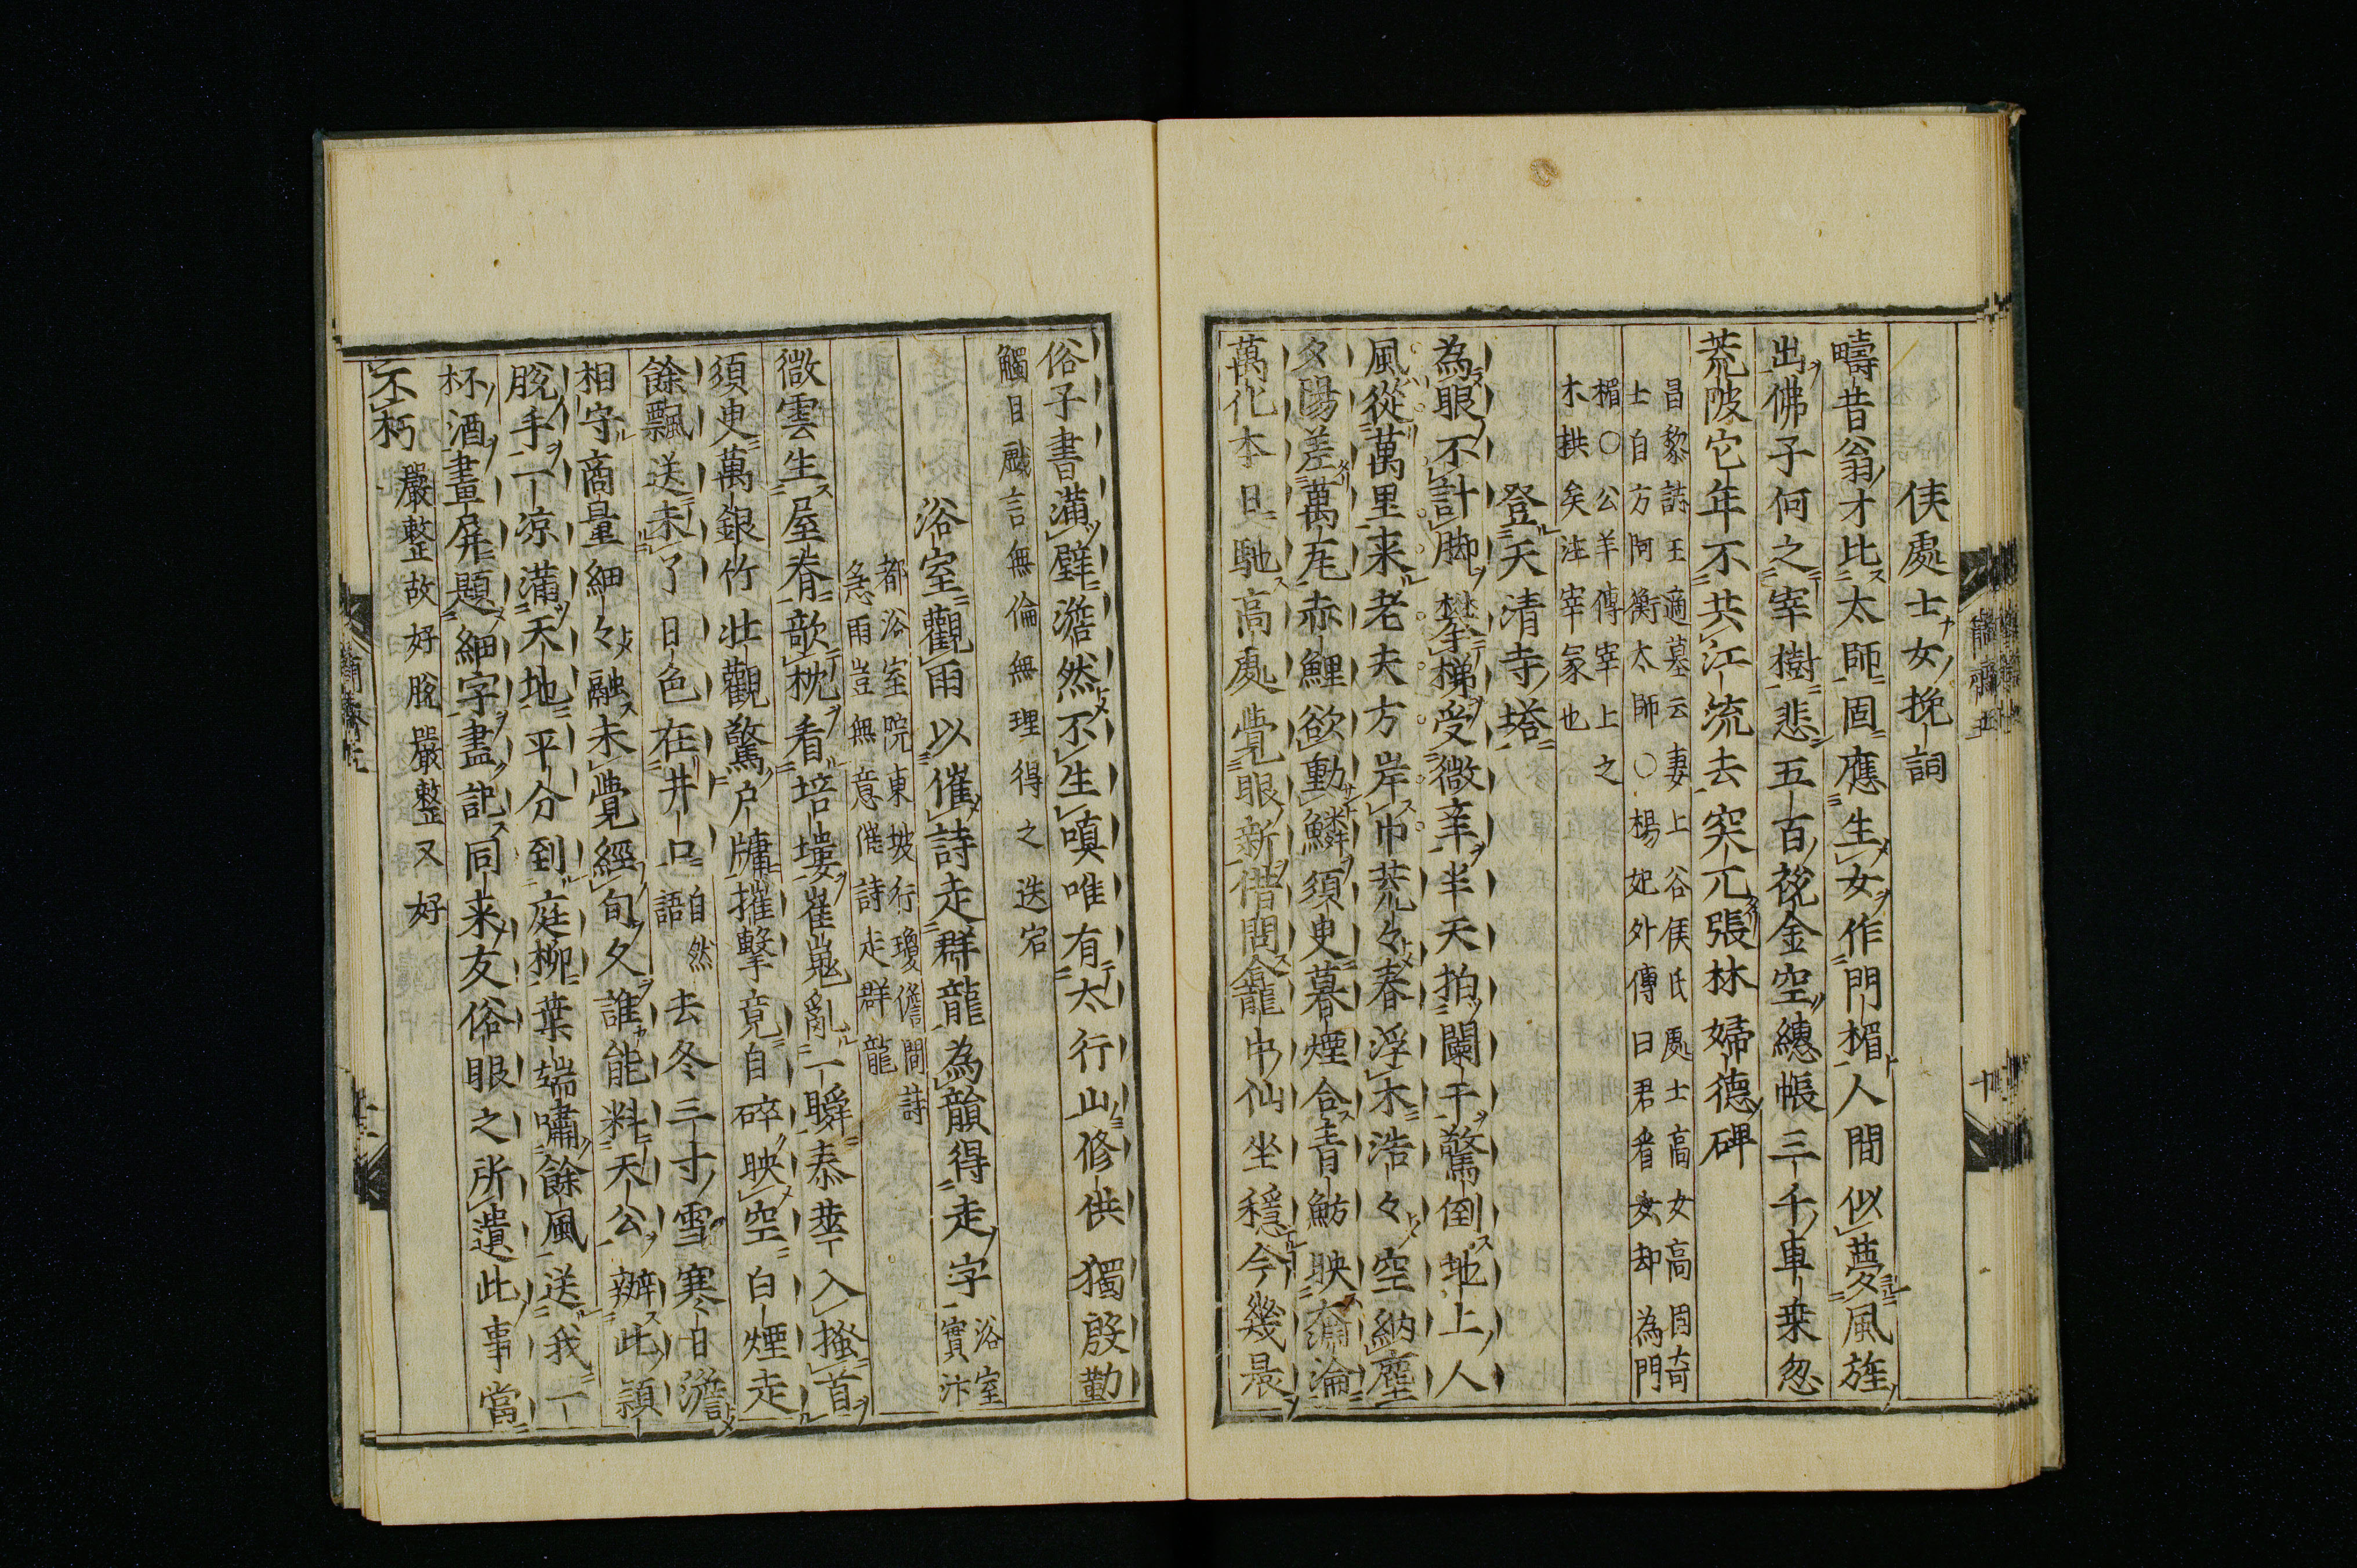 侯處士女挽詞
疇昔翁才比太師固應生女作門楣人間似夢風旌
出佛子何之宰樹悲五百稅金空繐帳三千車乗忽
荒陂它年不共江流去突兀張林婦德碑
昌黎誌王適墓云妻上谷侯氏處士高女高固奇
士自方阿衡太師○楊妃外傳曰君看女却為門
楣○公羊傳宰上之
木拱矣注宰冢也
登天清寺塔
為眼不計脚攀梯受微辛半天拍闌干驚倒地上人
風從萬里来老夫方岸巾荒々春浮木浩々空納塵
夕陽差萬瓦赤鯉欲動鱗須臾暮煙合青魴映奫淪
萬化本日馳高處覺眼新借問龕中仙坐穩今幾晨
俗子書滿壁澹然不生嗔唯有太行山修供獨殷勤
觸目戲言無倫無理得之迭宕
浴室觀雨以催詩走群龍為韻得走字
浴室
實汴
都浴室院東坡行瓊儋間詩
急雨豈無意催詩走群龍
微雲生屋脊歆枕看培塿崔嵬亂一瞬泰華入搔首
須臾萬銀竹壯觀驚戶牖摧擊竟自碎映空白煙走
餘飄送未了日色在井口
自然
語
去冬三寸雪寒日澹
相守商量細々融未覺經旬久誰能料天公辦此頴
脫手一凉滿天地平分到庭柳葉端嘯餘風送我一
杯酒畫屏題細字盡記同来友俗眼之所遺此事當
不朽
嚴整故好脫嚴整又好